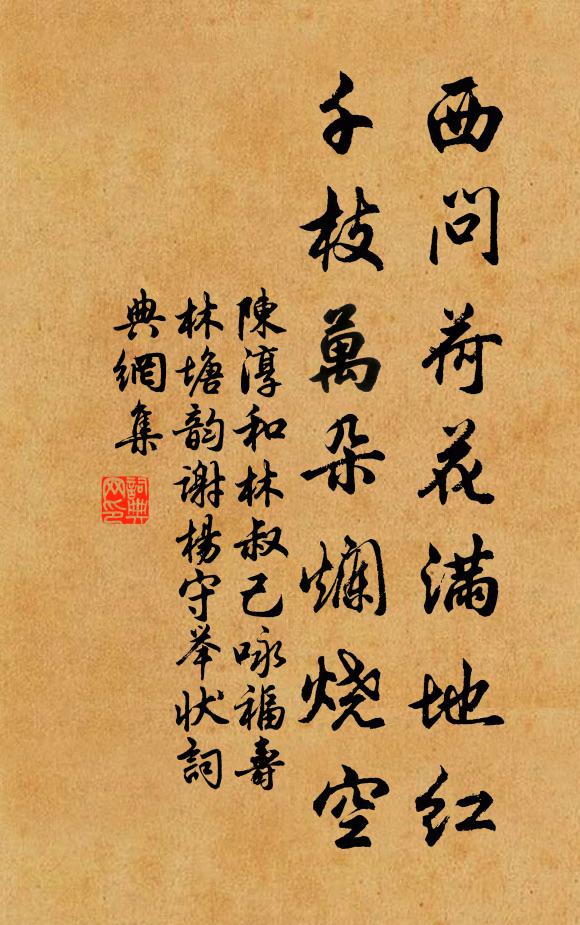 西问荷花满地红
千枝萬朵爛烧空
陳淳和林叔己咏福壽
林塘韵謝楊守举状詞
典網集
詞典
网印